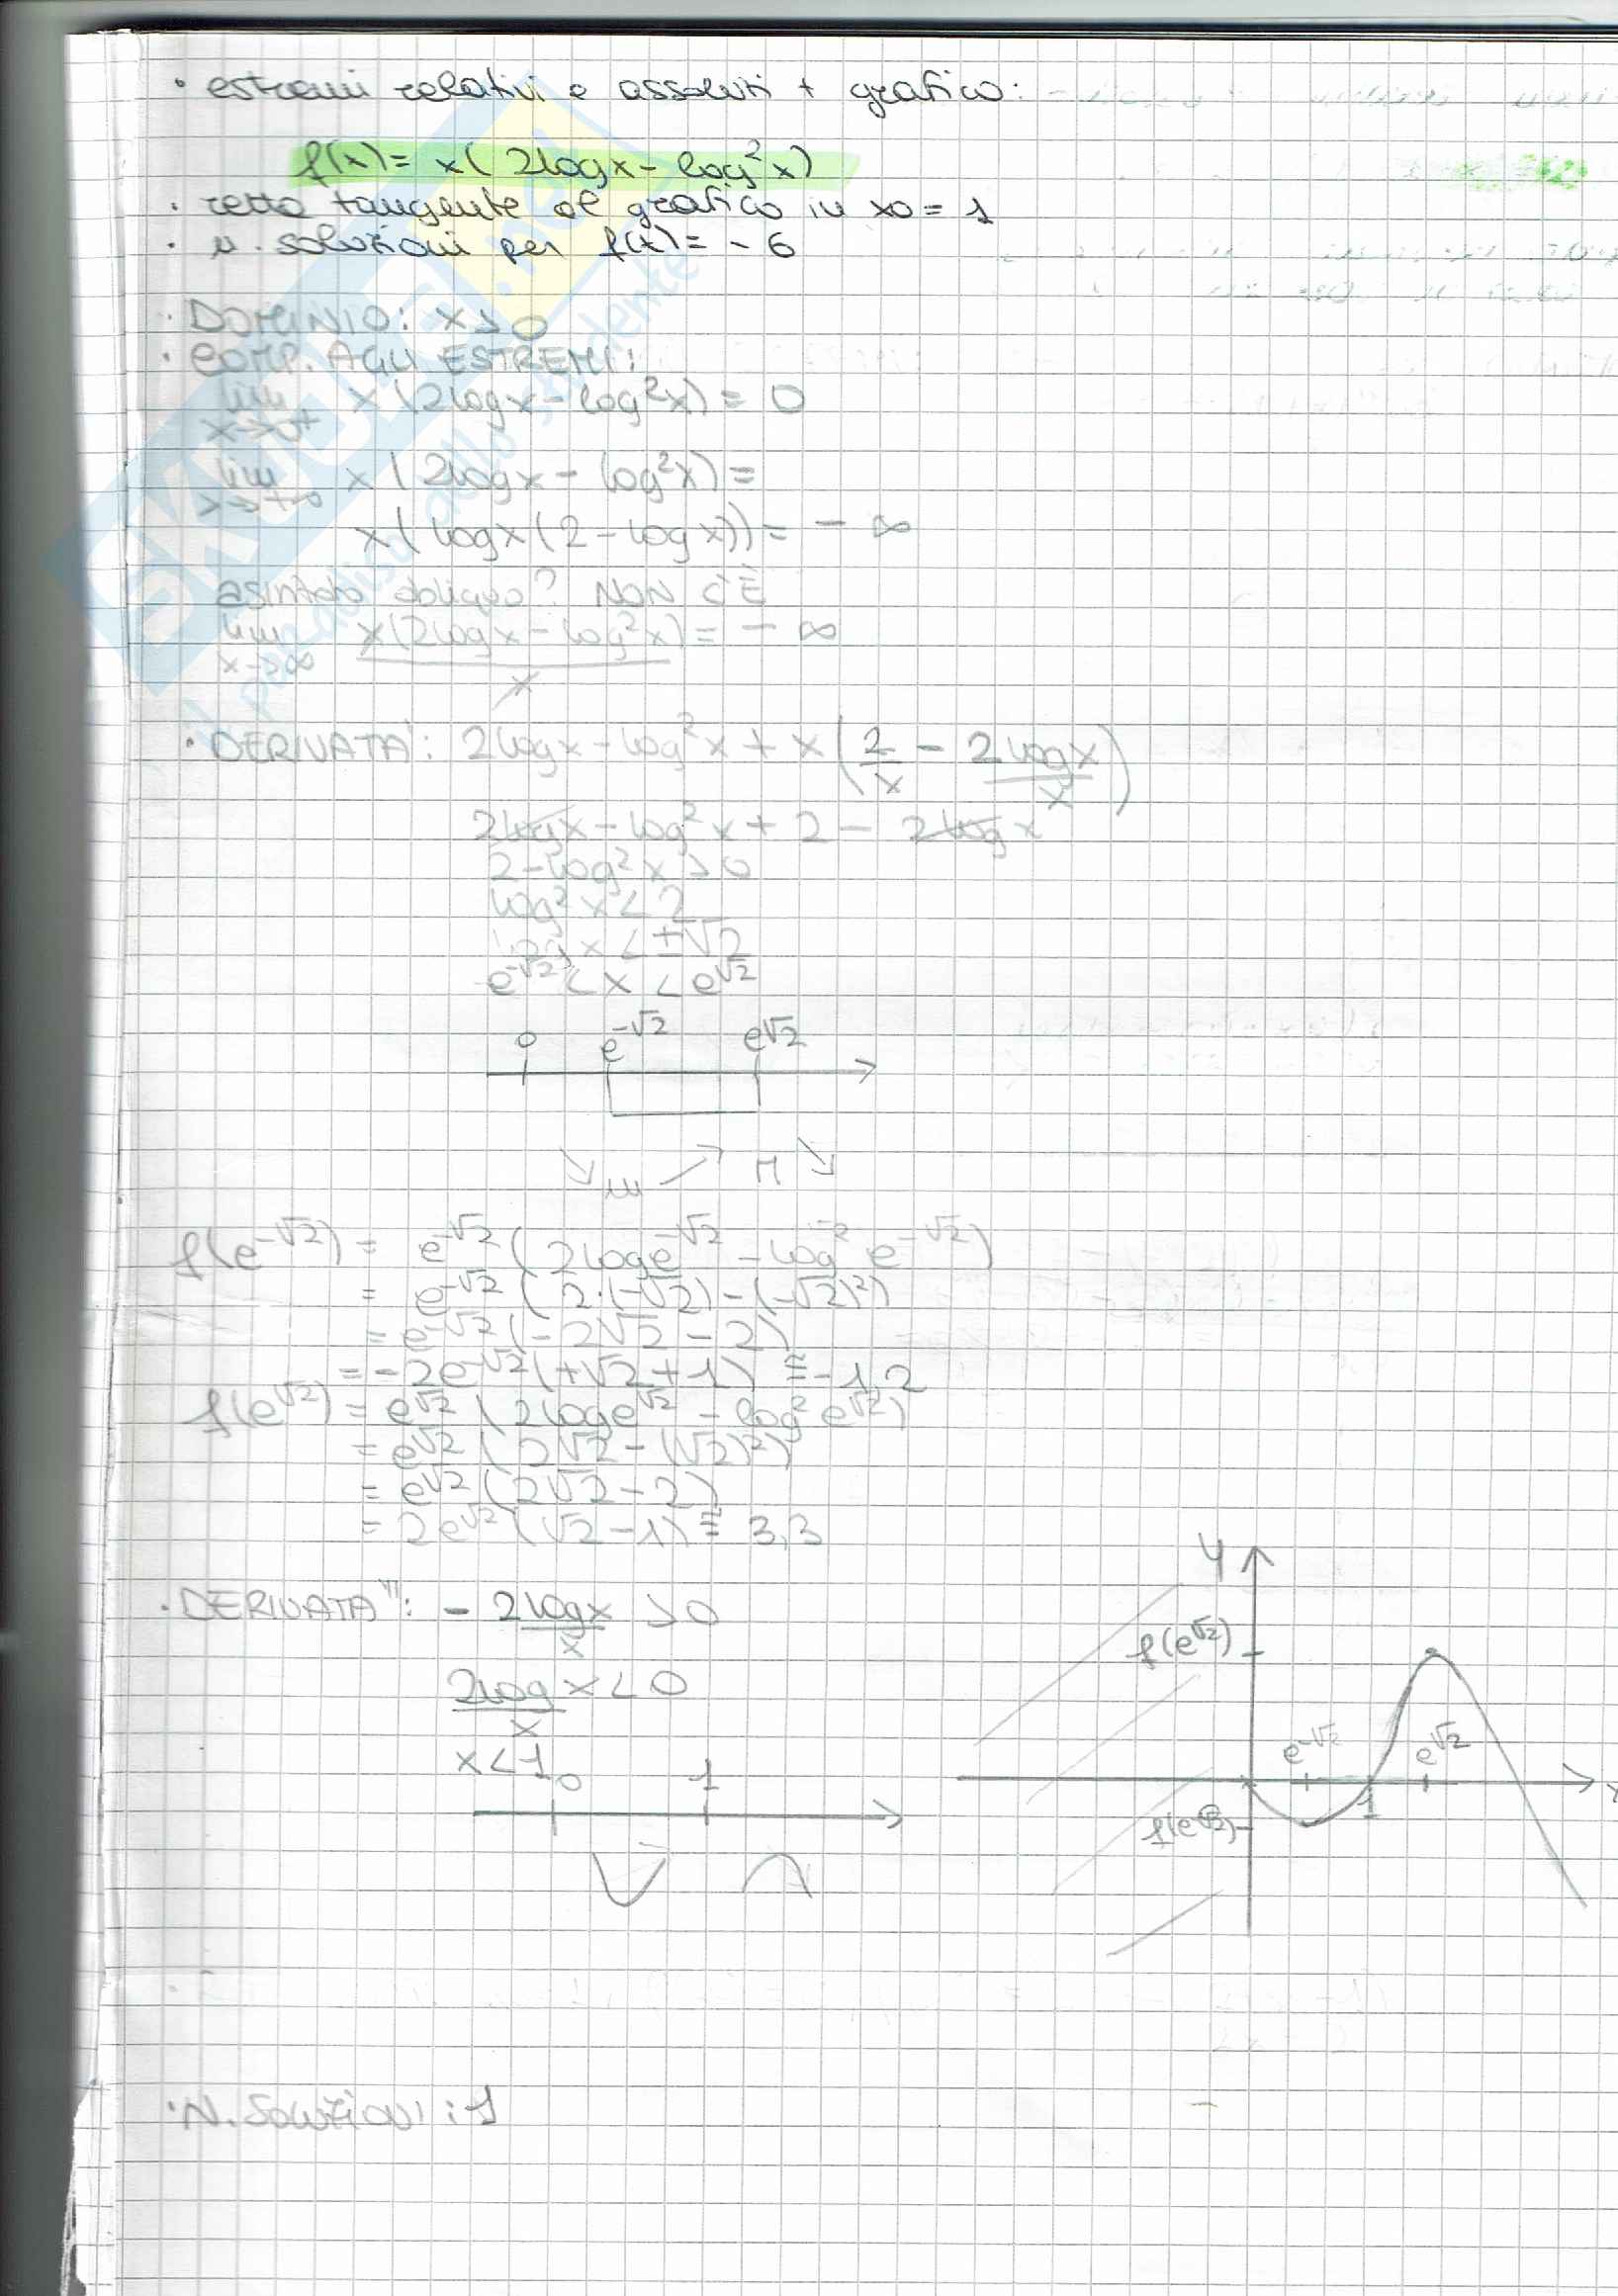 • estremi relativi e assoluti + grafico:
f(x) = x(2logx - log²x)
• retta tangente al grafico in x0 = 1
• n. soluzioni per f(x) = -6
• DOMINIO: x > 0
• COMP. AGLI ESTREMI:
lim x→0+ x(2logx - log²x) = 0
lim x→+∞ x(2logx - log²x) =
x(logx(2 - logx)) = -∞
asintoto obliquo? NON C'È
lim x→∞ x(2logx - log²x)/x = -∞
• DERIVATA': 2logx - log²x + x(2/x - 2logx/x)
2logx - log²x + 2 - 2logx
2 - log²x > 0
log²x < 2
logx < ±√2
e^-√2 < x < e^√2
0 e^-√2 e^√2
m M
f(e^-√2) = e^-√2 (2loge^-√2 - log²e^-√2)
= e^-√2 (2·(-√2) - (-√2)²)
= e^-√2 (-2√2 - 2)
= -2e^-√2 (+√2 + 1) ≅ -1,2
f(e^√2) = e^√2 (2loge^√2 - log²e^√2)
= e^√2 (2√2 - (√2)²)
= e^√2 (2√2 - 2)
= 2e^√2 (√2 - 1) ≅ 3,3
• DERIVATA'': - 2logx/x > 0
2logx/x < 0
x < 1
0 1
y
f(e^√2)
e^-√2 e^√2
1 x
f(e^-√2)
• N. Soluzioni: 1
SKUOLA.net
il paradiso dello studente